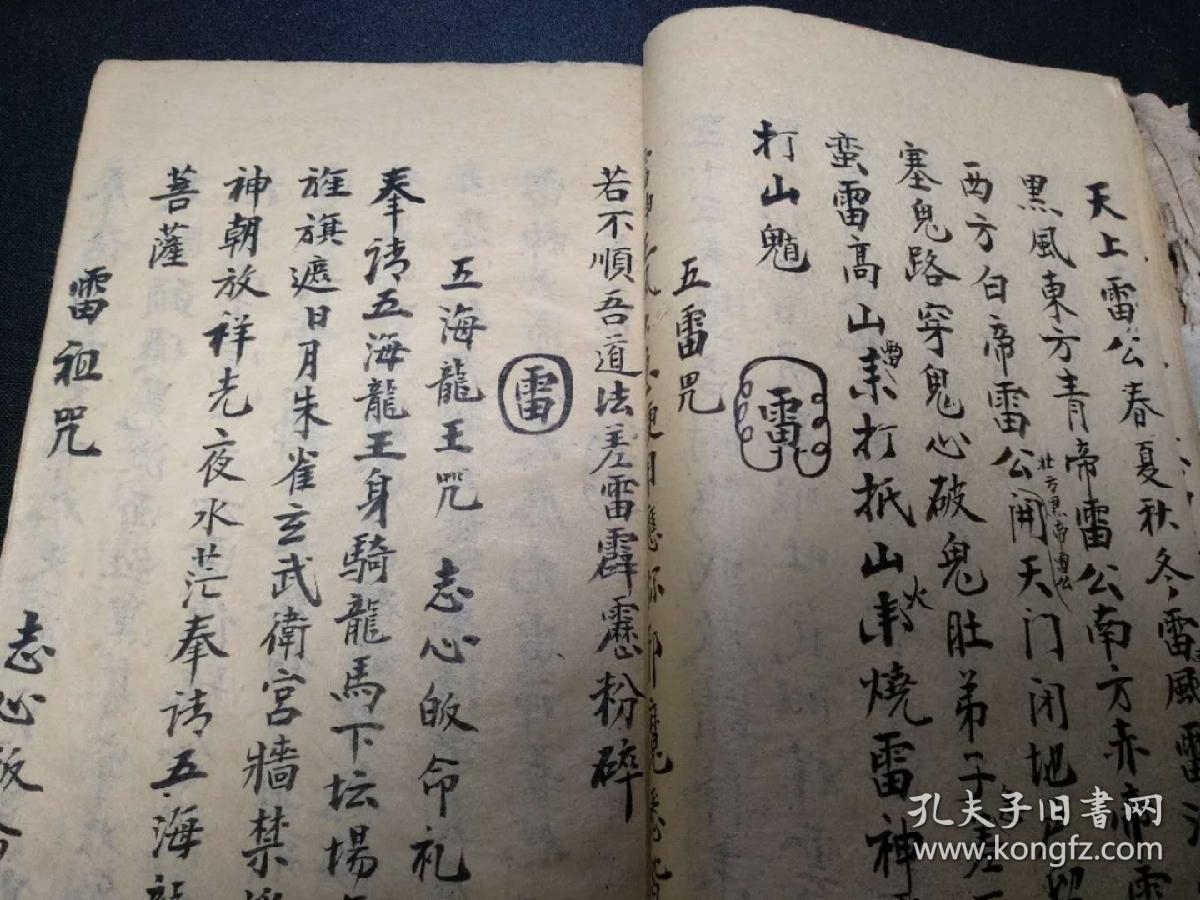 天上雷公春夏秋冬雷風雷
黑風東方青帝雷公南方赤帝雷
北方黑帝雷公
西方白帝雷公開天门闭地户
塞鬼路穿鬼心破鬼肚弟子差
蛮雷高山来打抵山来燒雷神
雷
火
打山魈
雷
五雷咒
若不順吾道法差雷霹靂粉碎
雷
五海龍王咒 志心皈命礼
奉請五海龍王身騎龍馬下坛場
旌旗遮日月朱雀玄武衛宮牆禁
神朝放祥光夜水茫奉請五海龍
菩薩
雷祖咒
志心皈命
孔夫子旧书网
www.kongfz.com